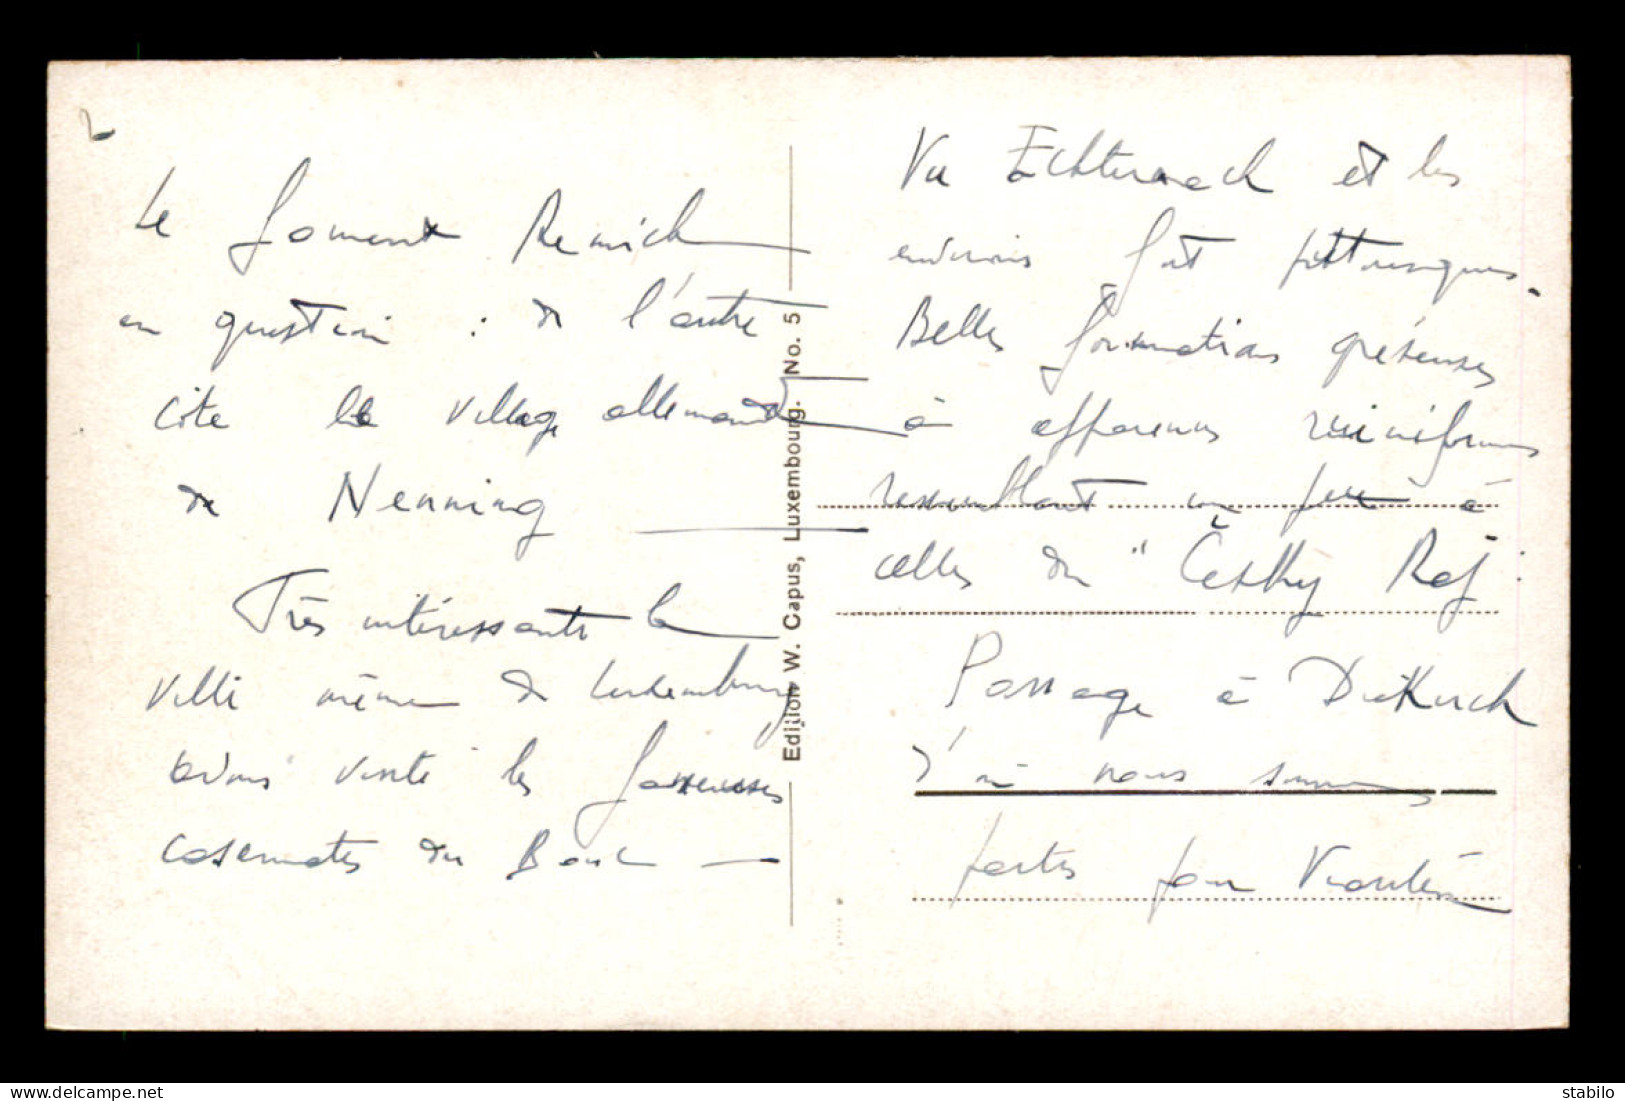 Le fameux Remich
en question : de l'autre
côté le village allemand
de Nennig
Très intéressante la
ville même de Luxembourg
avons visité les fameuses
casemates du Bouc
Edition W. Capus, Luxembourg. No. 5
Vu Echternach et les
environs fort pittoresques.
Belles formations gréseuses
à apparences ruiniformes
ressemblant un peu à
celles du "Česky Raj
Passage à Diekirch
d'où nous sommes
partis pour Vianden
delcampe.net
stabilo